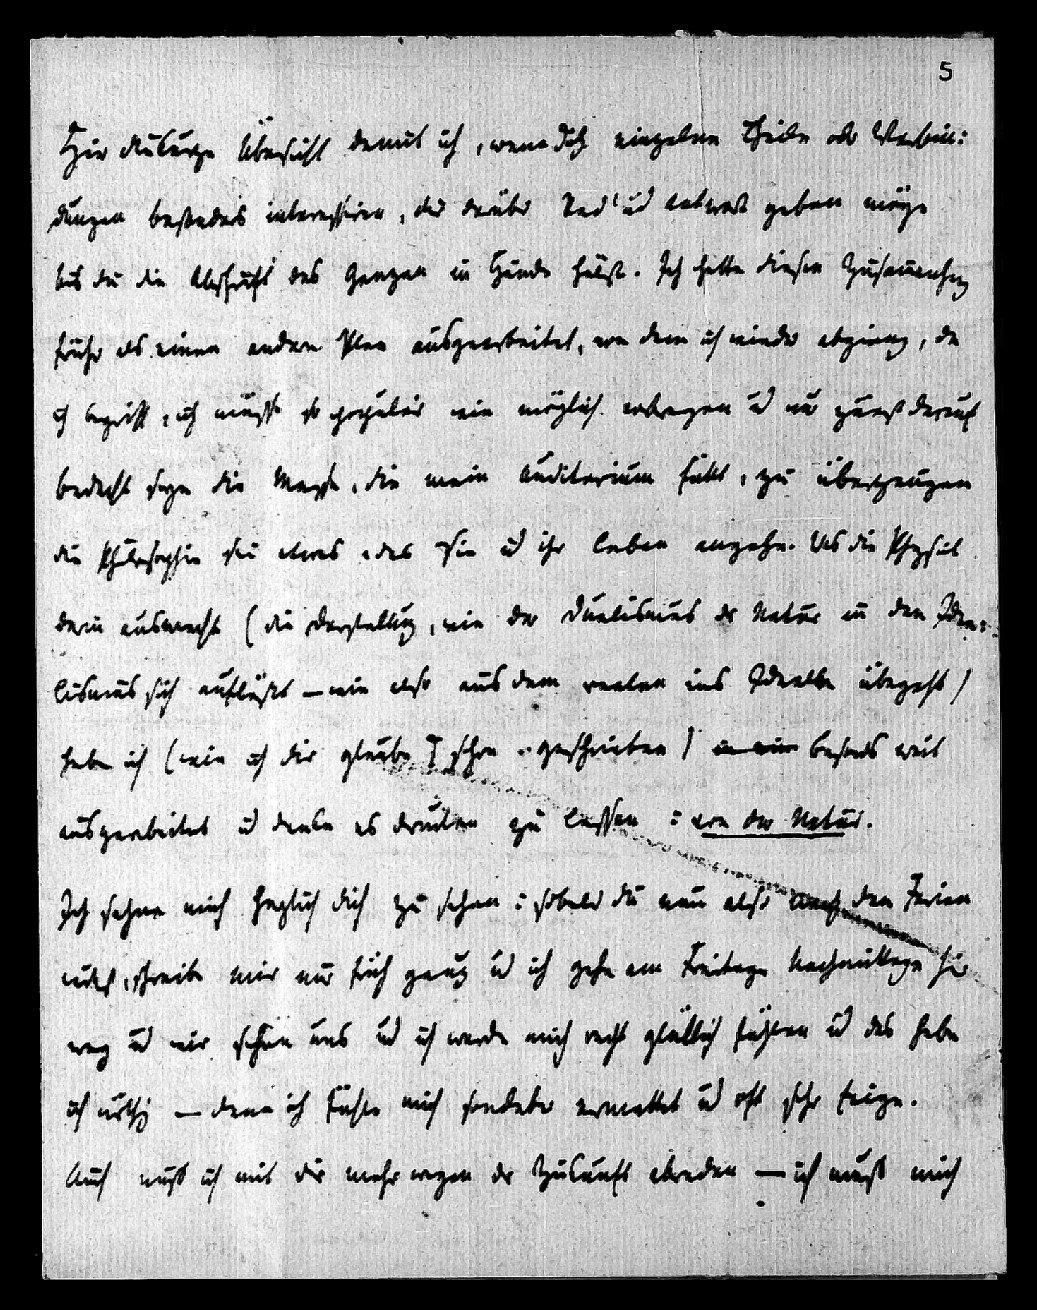 5
Hier die kurze Übersicht damit ich, wenn Dich einzelne Theile oder Verbin:
dungen besonders interessiren, dir darüber Red' und Antwort geben möge
bis du die Abschrift des Ganzen in Händen hast. Ich hatte diesen Zusammenhg
früher als einen andern Plan ausgearbeitet, von dem ich wieder abging, da
ich begriff, ich müsse so populär wie möglich vortragen und nur zuerst darauf
bedacht seyn die Masse, die mein Auditorium hält, zu überzeugen
die Philosophie sei etwas, das sie und ihr Leben angehe. Was die Physik
darin ausmacht (die Darstellung, wie der Dualismus der Natur in den Idea:
lismus sich auflöset – wie also aus dem realen ins Ideelle übergeht)
habe ich (wie ich dir glaube I schon geschrieben) besonders weit
ausgearbeitet und denke es drucken zu lassen: von der Natur.
Ich sehne mich herzlich dich zu sehen: sobald du nun also den Ferien
nahst, schreibe mir nur früh genug und ich gehe am Freitage Nachmittage hier
weg und wir sehen uns und ich werde mich recht glücklich fühlen und das habe
ich nöthig – denn ich fühle mich ermattet und oft sehr feige.
Auch muß ich mit dir mehr wegen der Zukunft abreden – ich muß mich